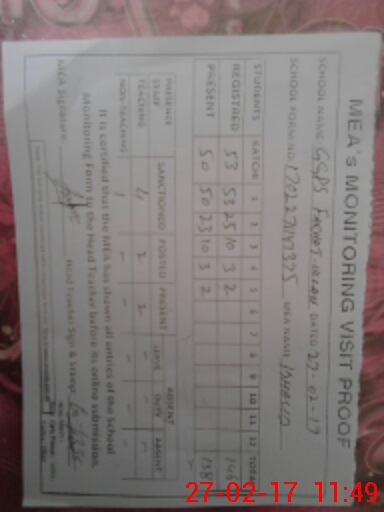 MEA's MONITORING VISIT PROOF
SCHOOL NAME GGPS DATED 27-02-17
SCHOOL FORM NO. MEA NAME
STUDENTS KATCHI 1 2 3 4 5 6 7 8 9 10 11 12 TOTAL
REGISTRED 53 53 25 10 3 2 146
PRESENT 50 50 23 10 3 2 138
PRESENCE ABSENT
STAFF SANCTIONED POSTED PRESENT LEAVE DUTY ABSENT
TEACHING 4 2 2 - - -
NON-TEACHING 1 - - - - -
It is certified that the MEA has shown all entries of the School
Monitoring Form to the Head Teacher before its online submission.
MEA Signature: Head Teacher Sign & Stamp:
27-02-17 11:49